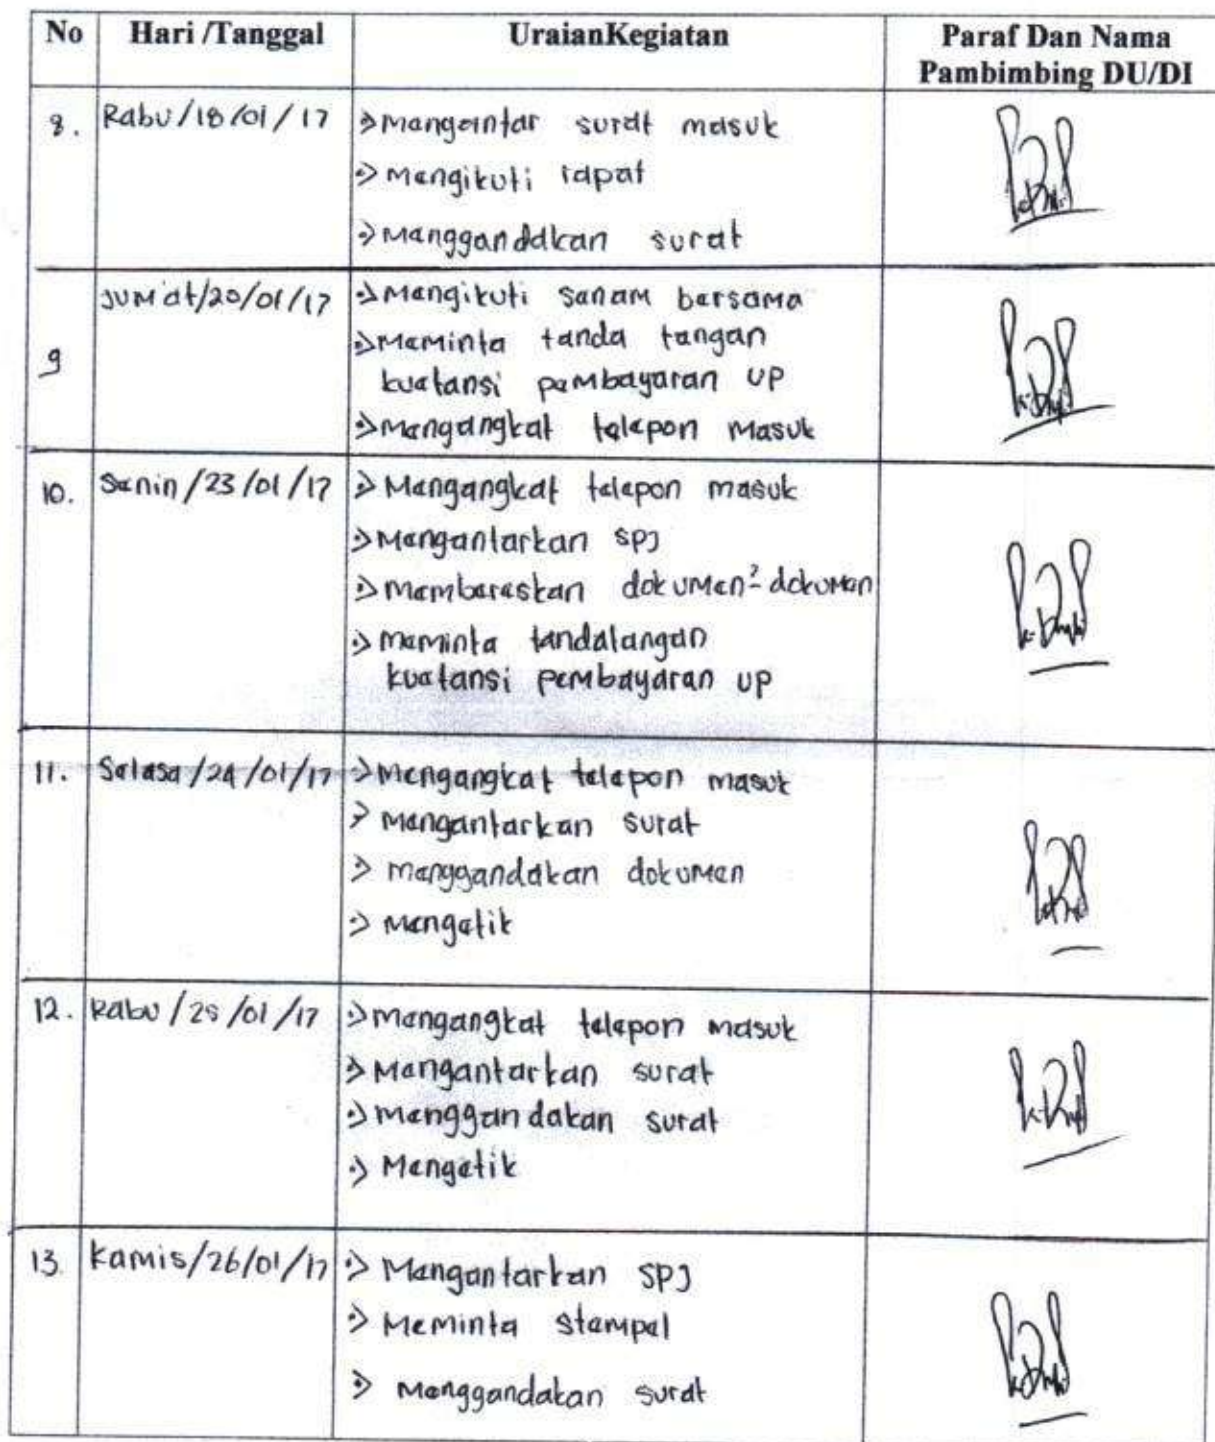 No Hari /Tanggal UraianKegiatan Paraf Dan Nama
Pambimbing DU/DI
8. Rabu/18/01/17 mengantar surat masuk
mengikuti rapat
menggandakan surat
9 Jum'at/20/01/17 Mengikuti senam bersama
meminta tanda tangan
kuetansi pembayaran up
mengangkat telepon masuk
10. Senin/23/01/17 Mengangkat telepon masuk
mengantarkan SPJ
membereskan dokumen²-dokumen
meminta tandatangan
kuetansi pembayaran up
11. Selasa/24/01/17 mengangkat telepon masuk
mengantarkan surat
menggandakan dokumen
mengetik
12. Rabu/25/01/17 mengangkat telepon masuk
Mengantarkan surat
menggandakan surat
Mengetik
13. Kamis/26/01/17 Mengantarkan SPJ
Meminta stempel
Menggandakan surat